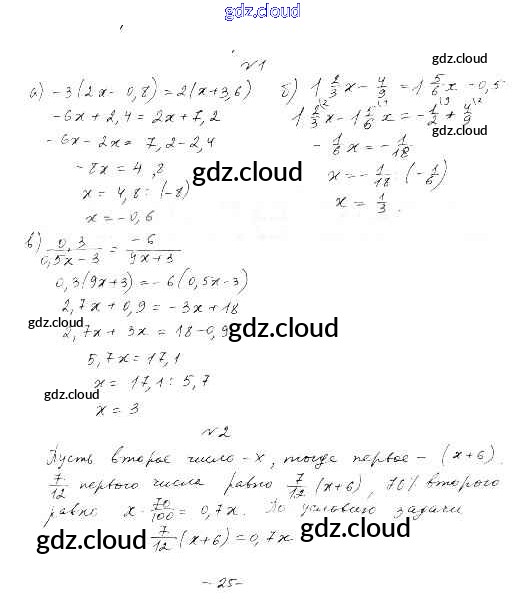 gdz.cloud
№1
gdz.cloud
а) -3(2x - 0,8) = 2(x+3,6)
-6x + 2,4 = 2x + 7,2
-6x - 2x = 7,2 - 2,4
-8x = 4,8
x = 4,8 : (-8)
x = -0,6
б) 1 2/3 x - 4/9 = 1 5/6 x - 0,5
1 2/3 \2 x - 1 5/6 \1 x = -1/2 \9 + 4/9 \2
- 1/6 x = - 1/18
x = - 1/18 : (- 1/6)
x = 1/3.
gdz.cloud
gdz.cloud
gdz.cloud
в) 0,3/(0,5x - 3) = -6/(9x+3)
0,3(9x+3) = -6(0,5x-3)
2,7x + 0,9 = -3x + 18
2,7x + 3x = 18 - 0,9
5,7x = 17,1
x = 17,1 : 5,7
x = 3
gdz.cloud
gdz.cloud
gdz.cloud
gdz.cloud
№2
Пусть второе число - x, тогда первое - (x+6).
7/12 первого числа равно 7/12 (x+6), 70% второго
равно x · 70/100 = 0,7x. По условию задачи
7/12 (x+6) = 0,7x
gdz.cloud
gdz.cloud
gdz.cloud
- 25 -